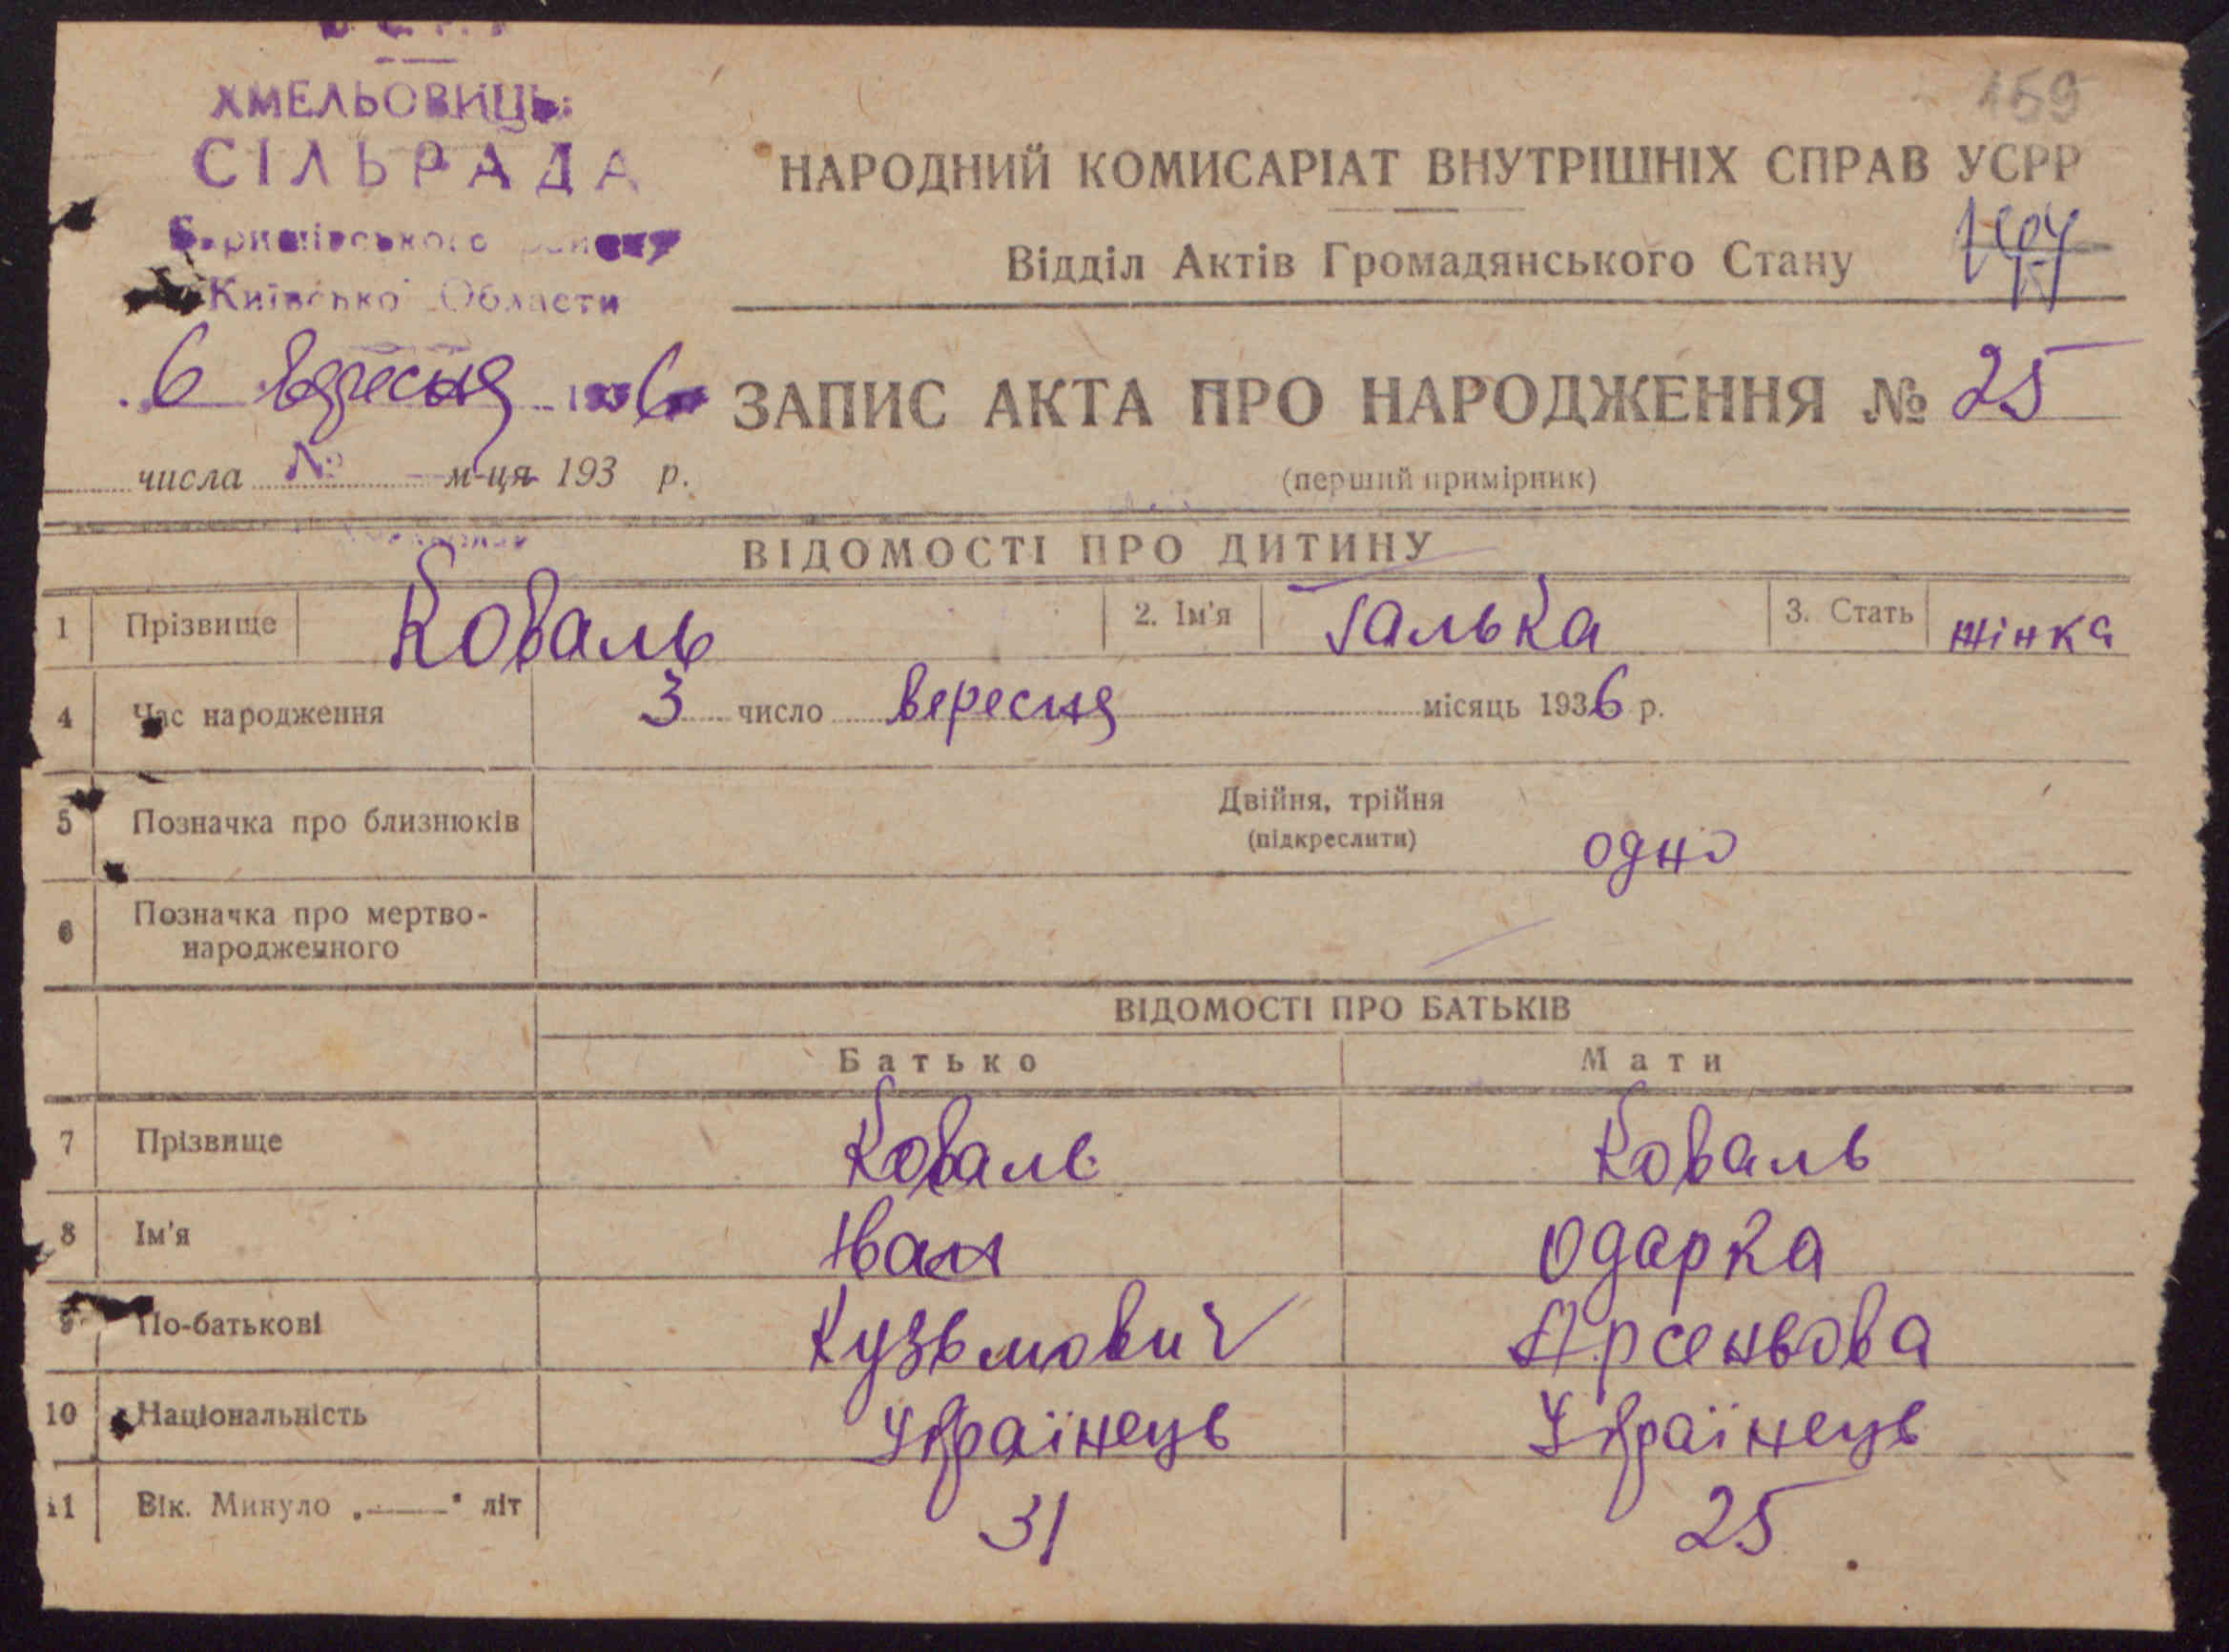 ХМЕЛЬОВИЦЬ
СІЛЬРАДА
Київсько Области
6 вересня 1936
159
НАРОДНИЙ КОМИСАРІАТ ВНУТРІШНІХ СПРАВ УСРР
Відділ Актів Громадянського Стану
ЗАПИС АКТА ПРО НАРОДЖЕННЯ № 25
числа № м-ця 193 р.
(перший примірник)
ВІДОМОСТІ ПРО ДИТИНУ
1 Прізвище Коваль 2. Ім'я Галька 3. Стать жінка
4 Час народження 3 число вересня місяць 1936 р.
5 Позначка про близнюків Двійня, трійня
(підкреслити) одно
6 Позначка про мертво-
народженного
ВІДОМОСТІ ПРО БАТЬКІВ
Батько Мати
7 Прізвище Коваль Коваль
8 Ім'я Іван Одарка
9 По-батькові Кузьмович Арсеньова
10 Національність Українець Українець
11 Вік. Минуло „——" літ 31 25